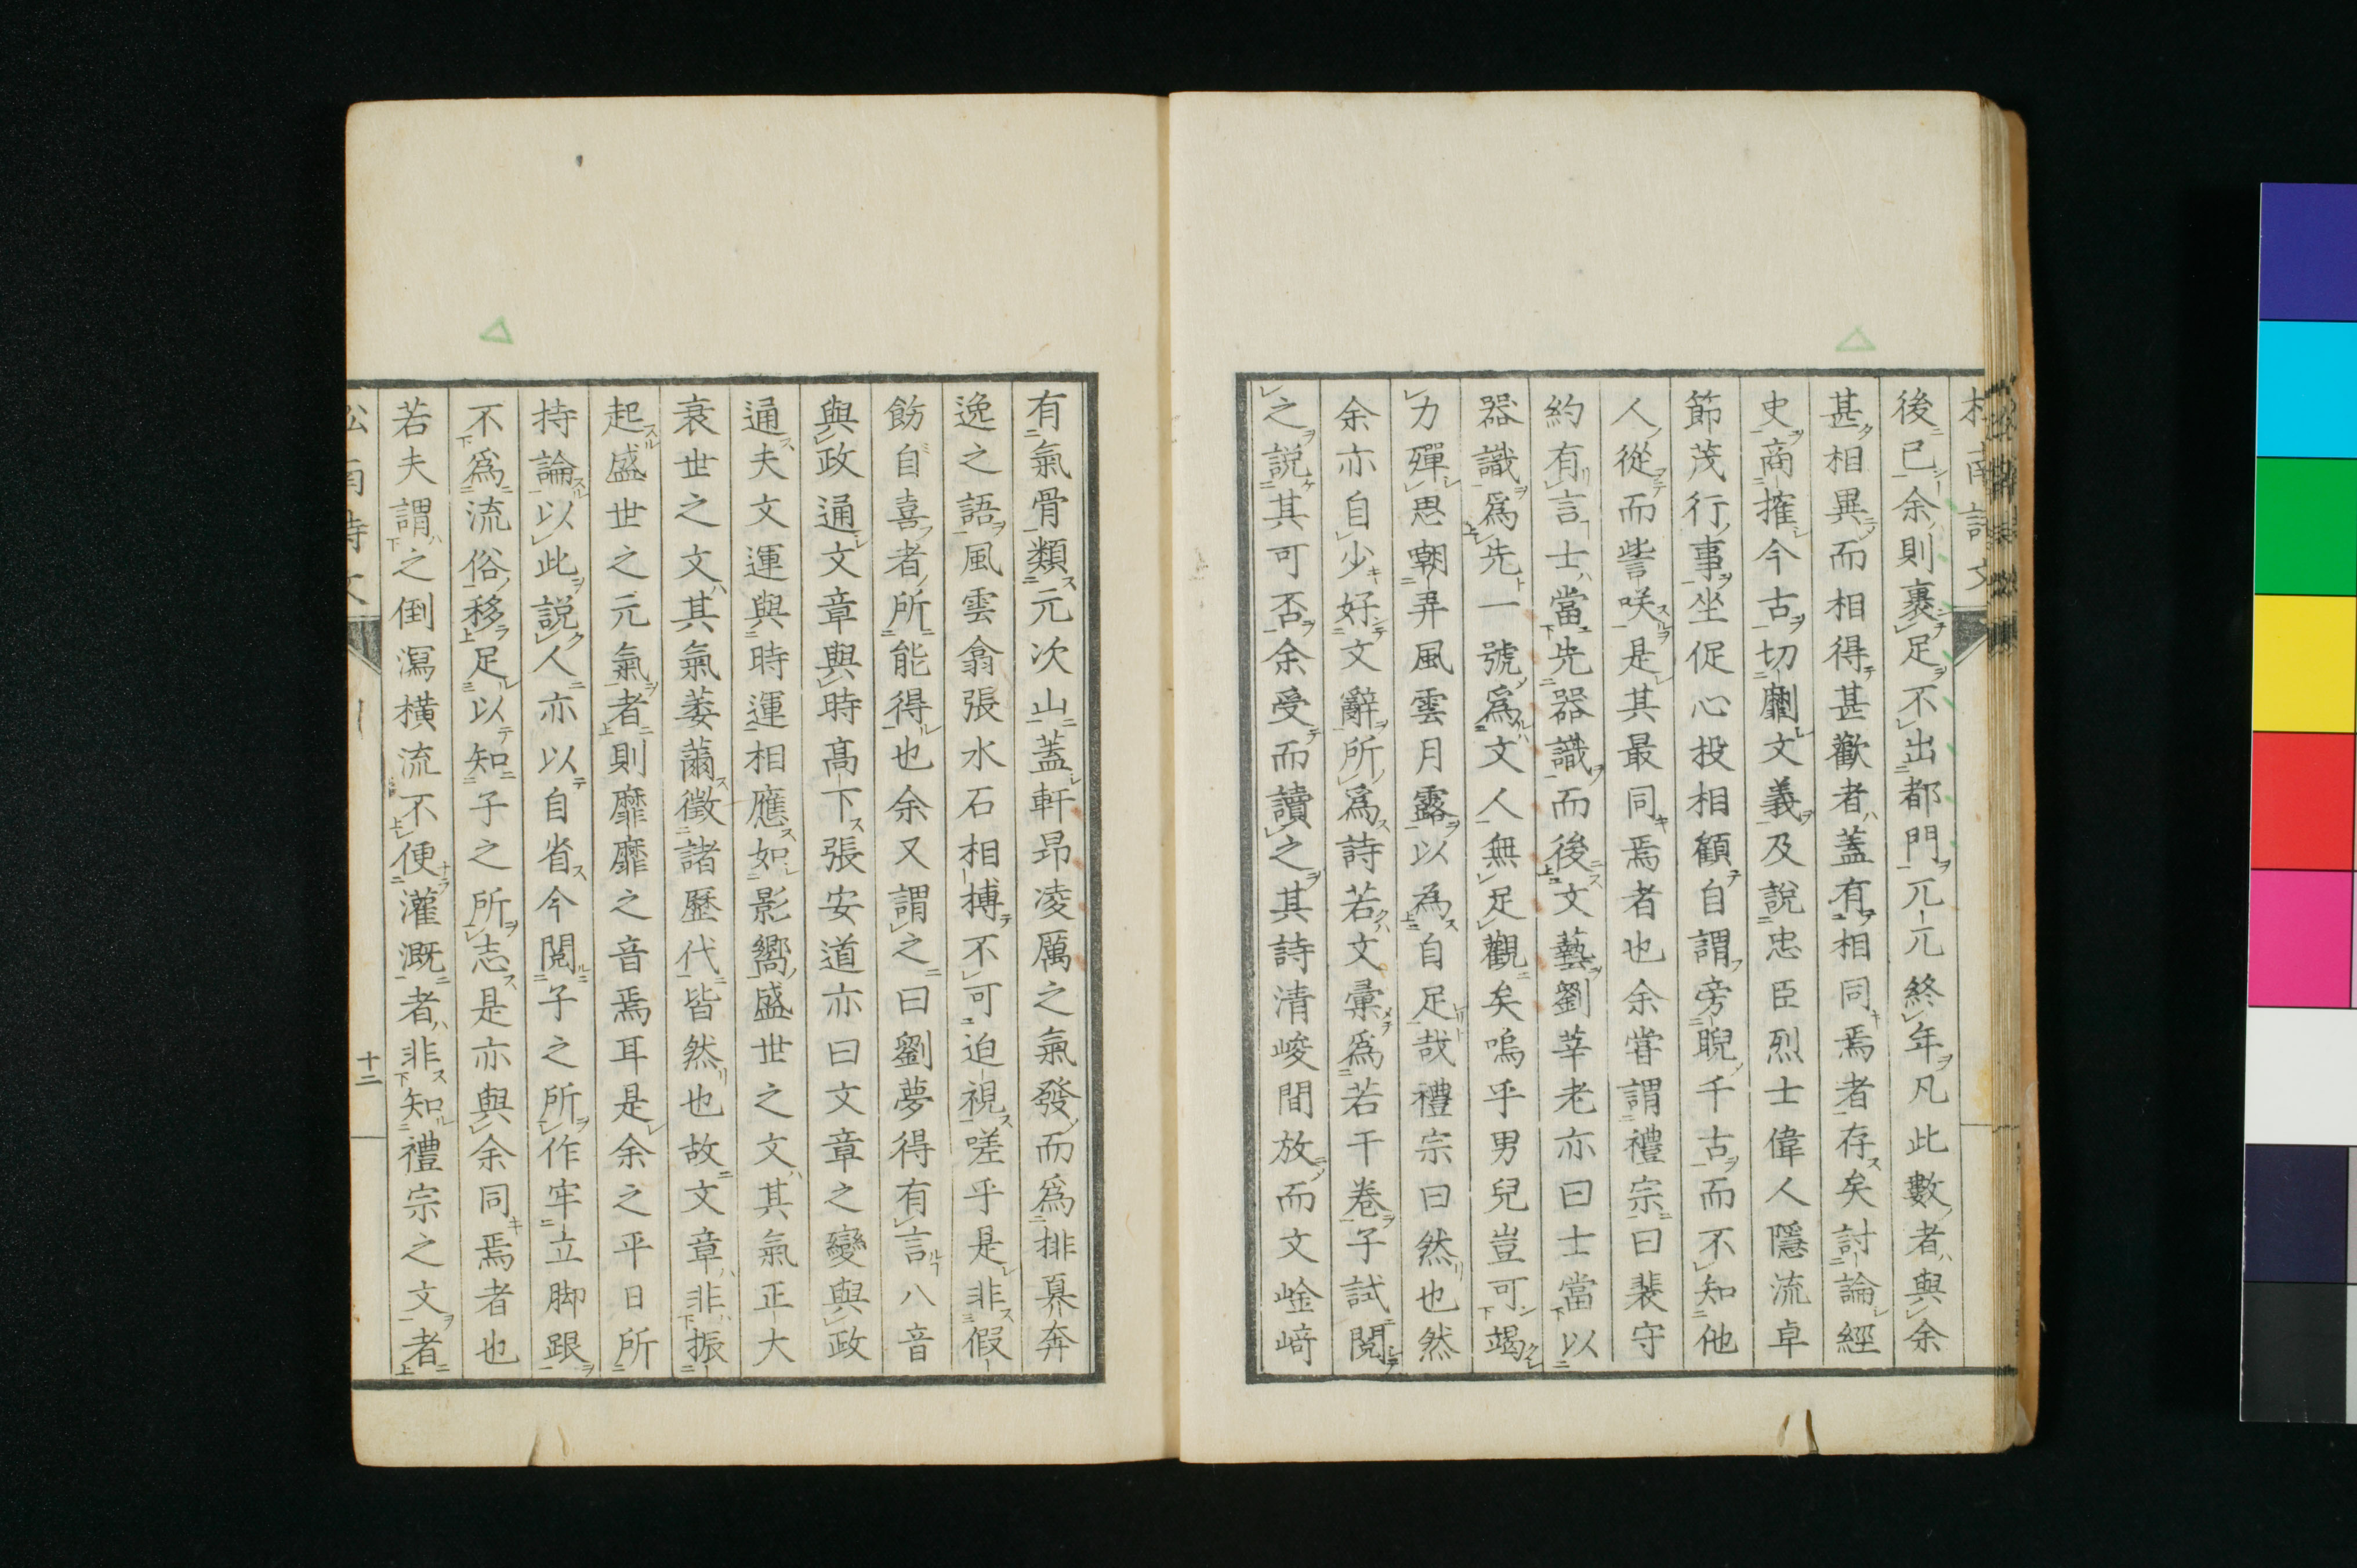 後已余則裹足不出都門兀兀終年凡此數者與余
甚相異而相得甚歡者蓋有相同焉者存矣討論經
史商搉今古切劘文義及說忠臣烈士偉人隱流卓
節茂行事坐促心投相顧自謂旁睨千古而不知他
人從而訾咲是其最同焉者也余甞謂禮宗曰裴守
約有言士當先器識而後文藝劉莘老亦曰士當以
器識爲先一號爲文人無足觀矣嗚乎男兒豈可竭
力殫思嘲弄風雲月露以為自足哉禮宗曰然也然
余亦自少好文辭所爲詩若文彙爲若干卷子試閱
之說其可否余受而讀之其詩清峻間放而文崯﨑
有氣骨類元次山蓋軒昂凌厲之氣發而爲排奡奔
逸之語風雲翕張水石相搏不可迫視嗟乎是非假
飭自喜者所能得也余又謂之曰劉夢得有言八音
與政通文章與時高下張安道亦曰文章之變與政
通夫文運與時運相應如影嚮盛世之文其氣正大
衰世之文其氣萎薾徵諸歷代皆然也故文章非振
起盛世之元氣者則靡靡之音焉耳是余之平日所
持論以此說人亦以自省今閱子之所作牢立脚跟
不爲流俗移足以知子之所志是亦與余同焉者也
若夫謂之倒瀉橫流不便灌溉者非知禮宗之文者
松南詩文
十二